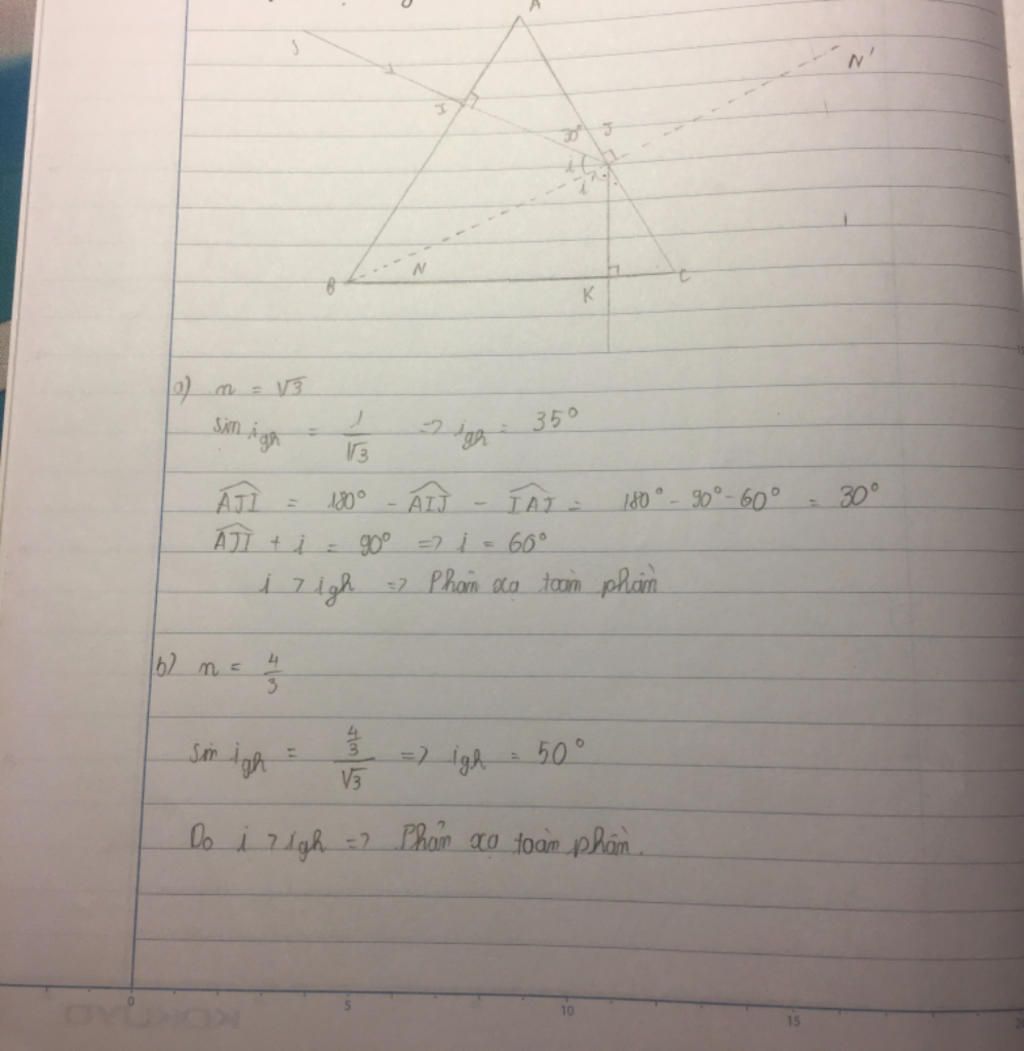 A
S
I
30° J
i
i'
N'
N
B
K
C
a) n = √3
sin igh = 1/√3 => igh = 35°
AJI = 180° - AIJ - IAJ = 180° - 90° - 60° = 30°
AJI + i = 90° => i = 60°
i > igh => Phản xạ toàn phần
b) n = 4/3
sin igh = (4/3)/√3 => igh = 50°
Do i > igh => Phản xạ toàn phần.
0 5 10 15 20
KOKUYO